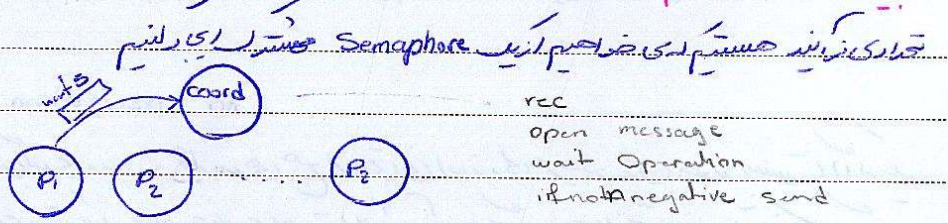 تعدادی فرآیند هستیم که می خواهیم از یک Semaphore مشترک ایجاد کنیم
wait S
coord
rec
open message
wait Operation
if not negative send
P1 P2 ..... P2